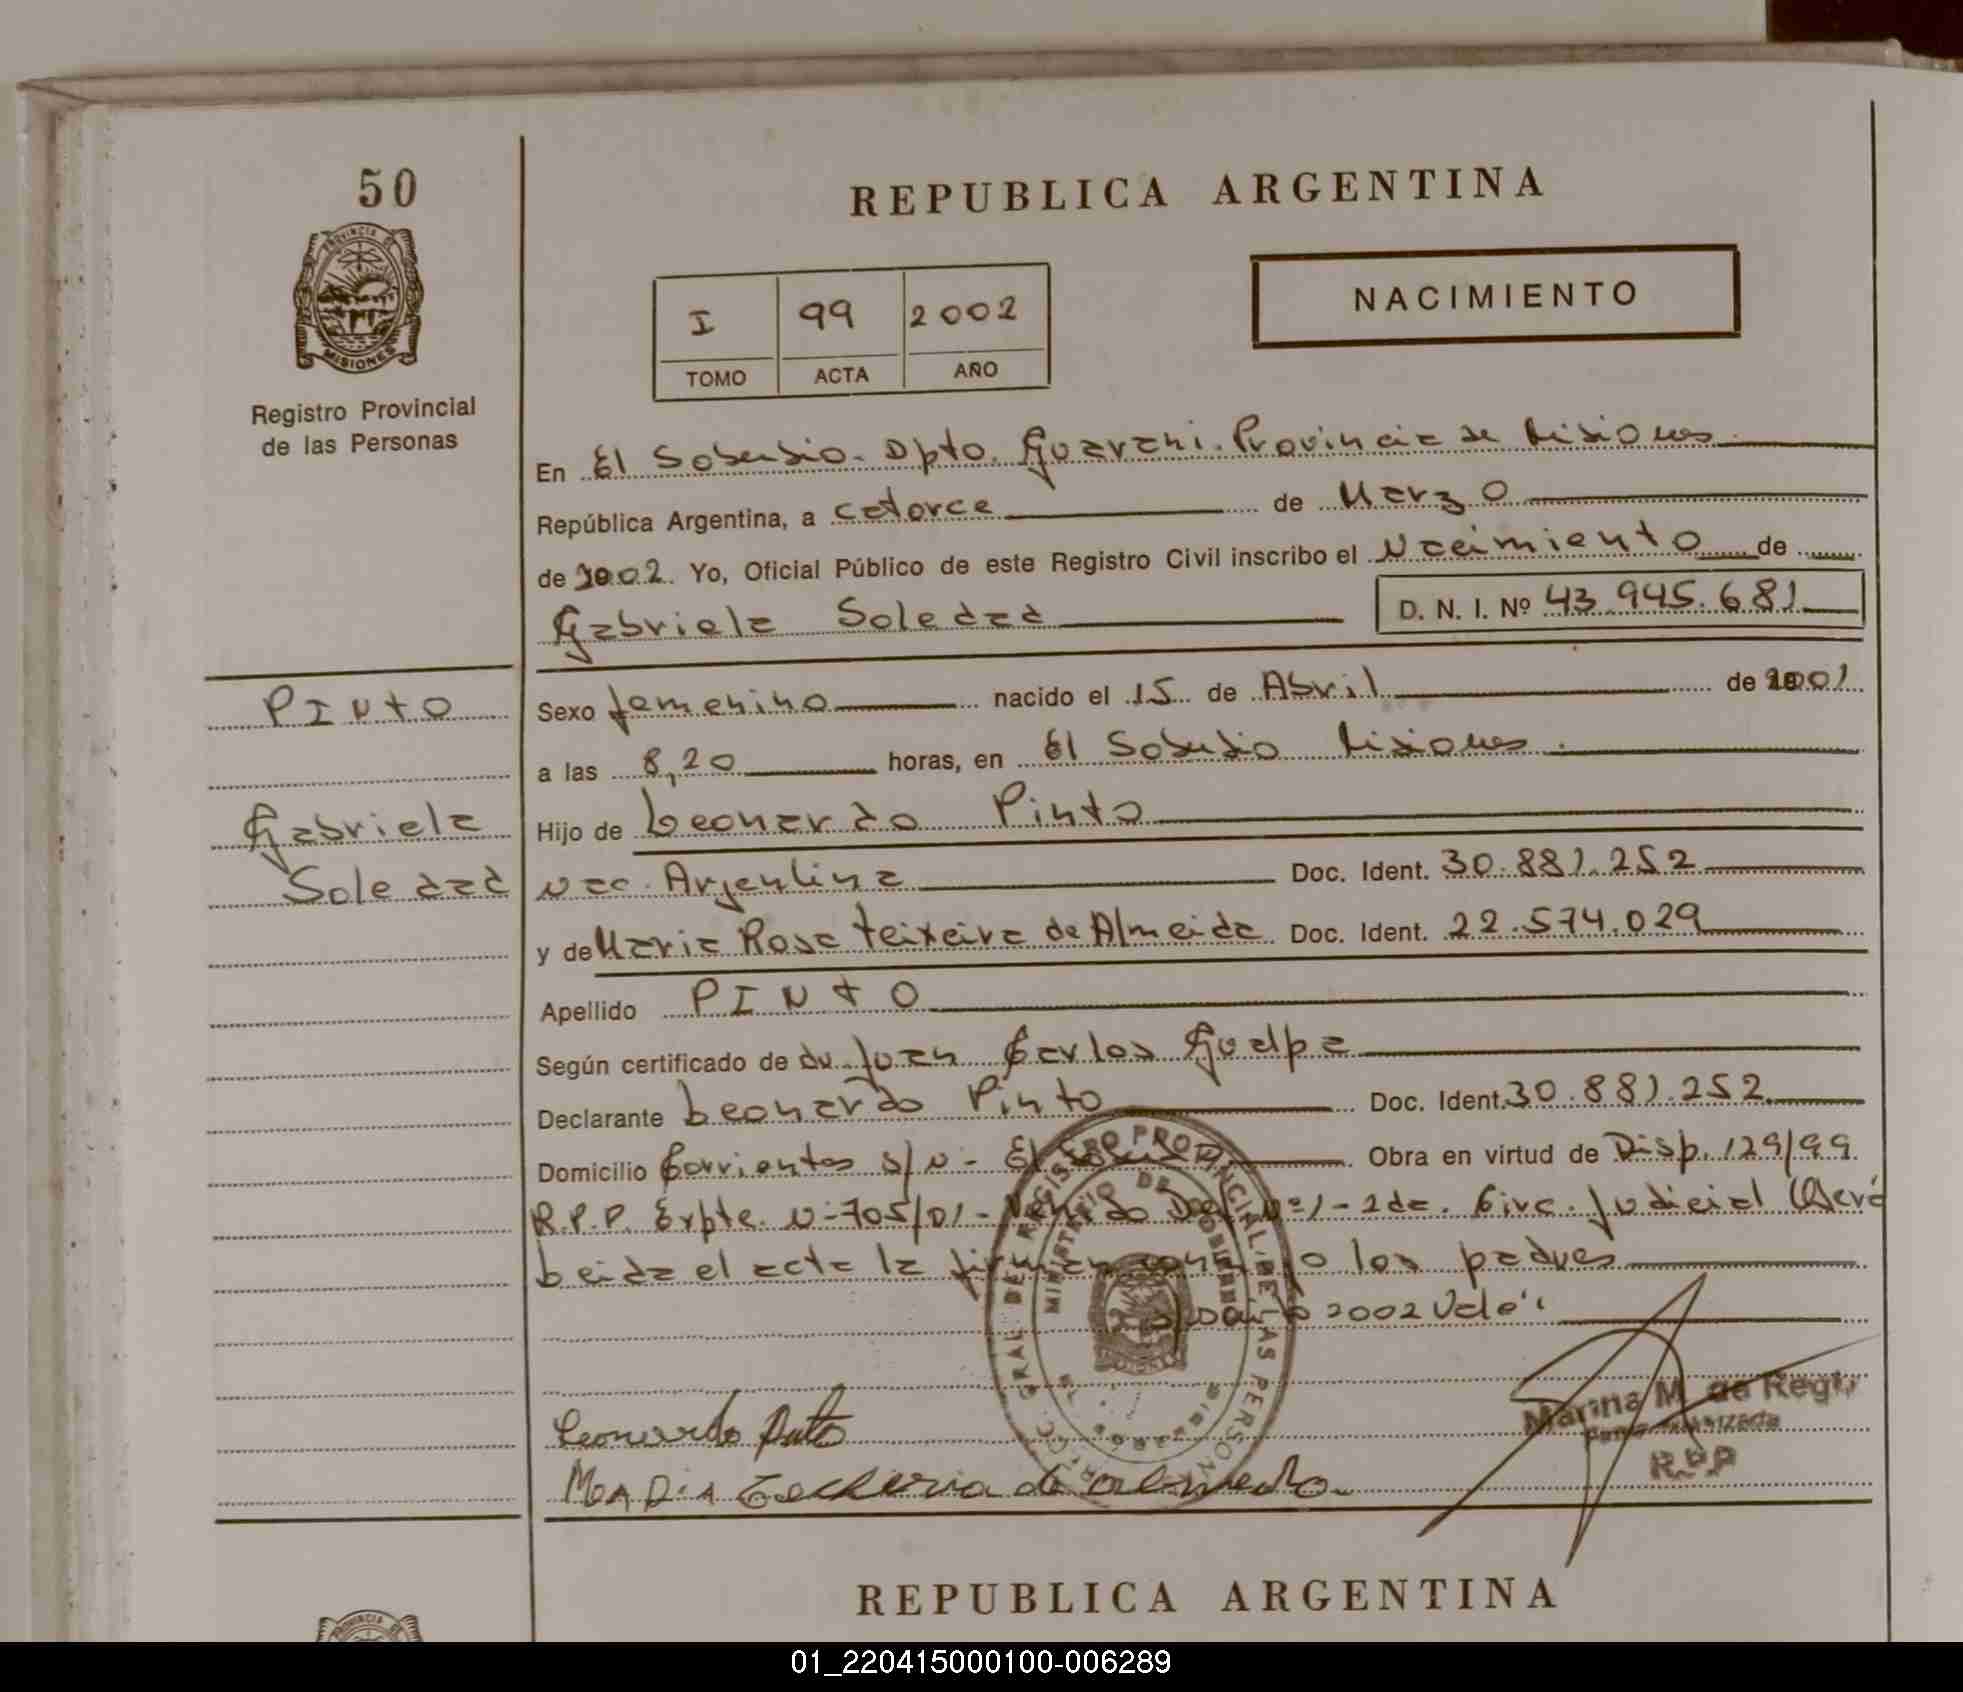 50
PROVINCIA DE
MISIONES
Registro Provincial
de las Personas
REPUBLICA ARGENTINA
I 99 2002
TOMO ACTA AÑO
NACIMIENTO
En El Soberbio. Dpto. Guarani. Provincia de Misiones
República Argentina, a catorce de Marzo
de 2002. Yo, Oficial Público de este Registro Civil inscribo el Nacimiento de
Gabriela Soledad D. N. I. Nº 43.945.681
PINTO
Sexo femenino nacido el 15 de Abril de 2001
a las 8,20 horas, en El Soberbio Misiones.
Gabriela
Hijo de Leonardo Pinto
Soledad
Nac. Argentina Doc. Ident. 30.881.252
y de Maria Rosa Teixeira de Almeida Doc. Ident. 22.574.029
Apellido PINTO
Según certificado de du. Juan Carlos Gualpa
Declarante Leonardo Pinto Doc. Ident. 30.881.252
Domicilio Corrientes S/N - El Obra en virtud de Disp. 129/99
R.P.P. Expte. N-705/01- Nº1-2da. Circ. Judicial
Leida el acta la firman conmigo los padres
2002 Vale
Leonardo Pinto
MARIA de
Marina M. de
R.P.P
REPUBLICA ARGENTINA
PROVINCIA DE
01_220415000100-006289